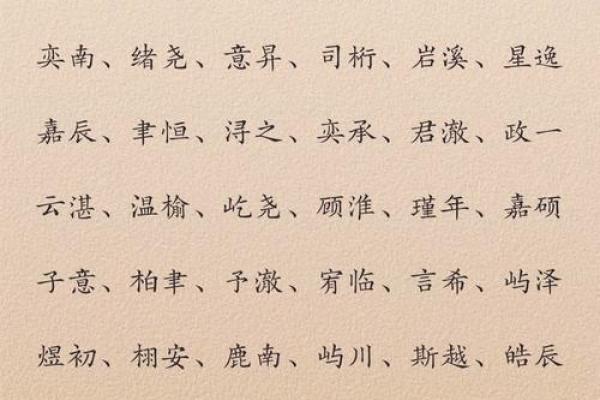 奕南、绪尧、意昇、司桁、岩溪、星逸
嘉辰、聿恒、浔之、奕承、君澈、政一
云湛、温榆、屹尧、顾淮、瑾年、嘉硕
子意、柏聿、予澈、宥临、言希、屿泽
煜初、栩安、鹿南、屿川、斯越、皓辰